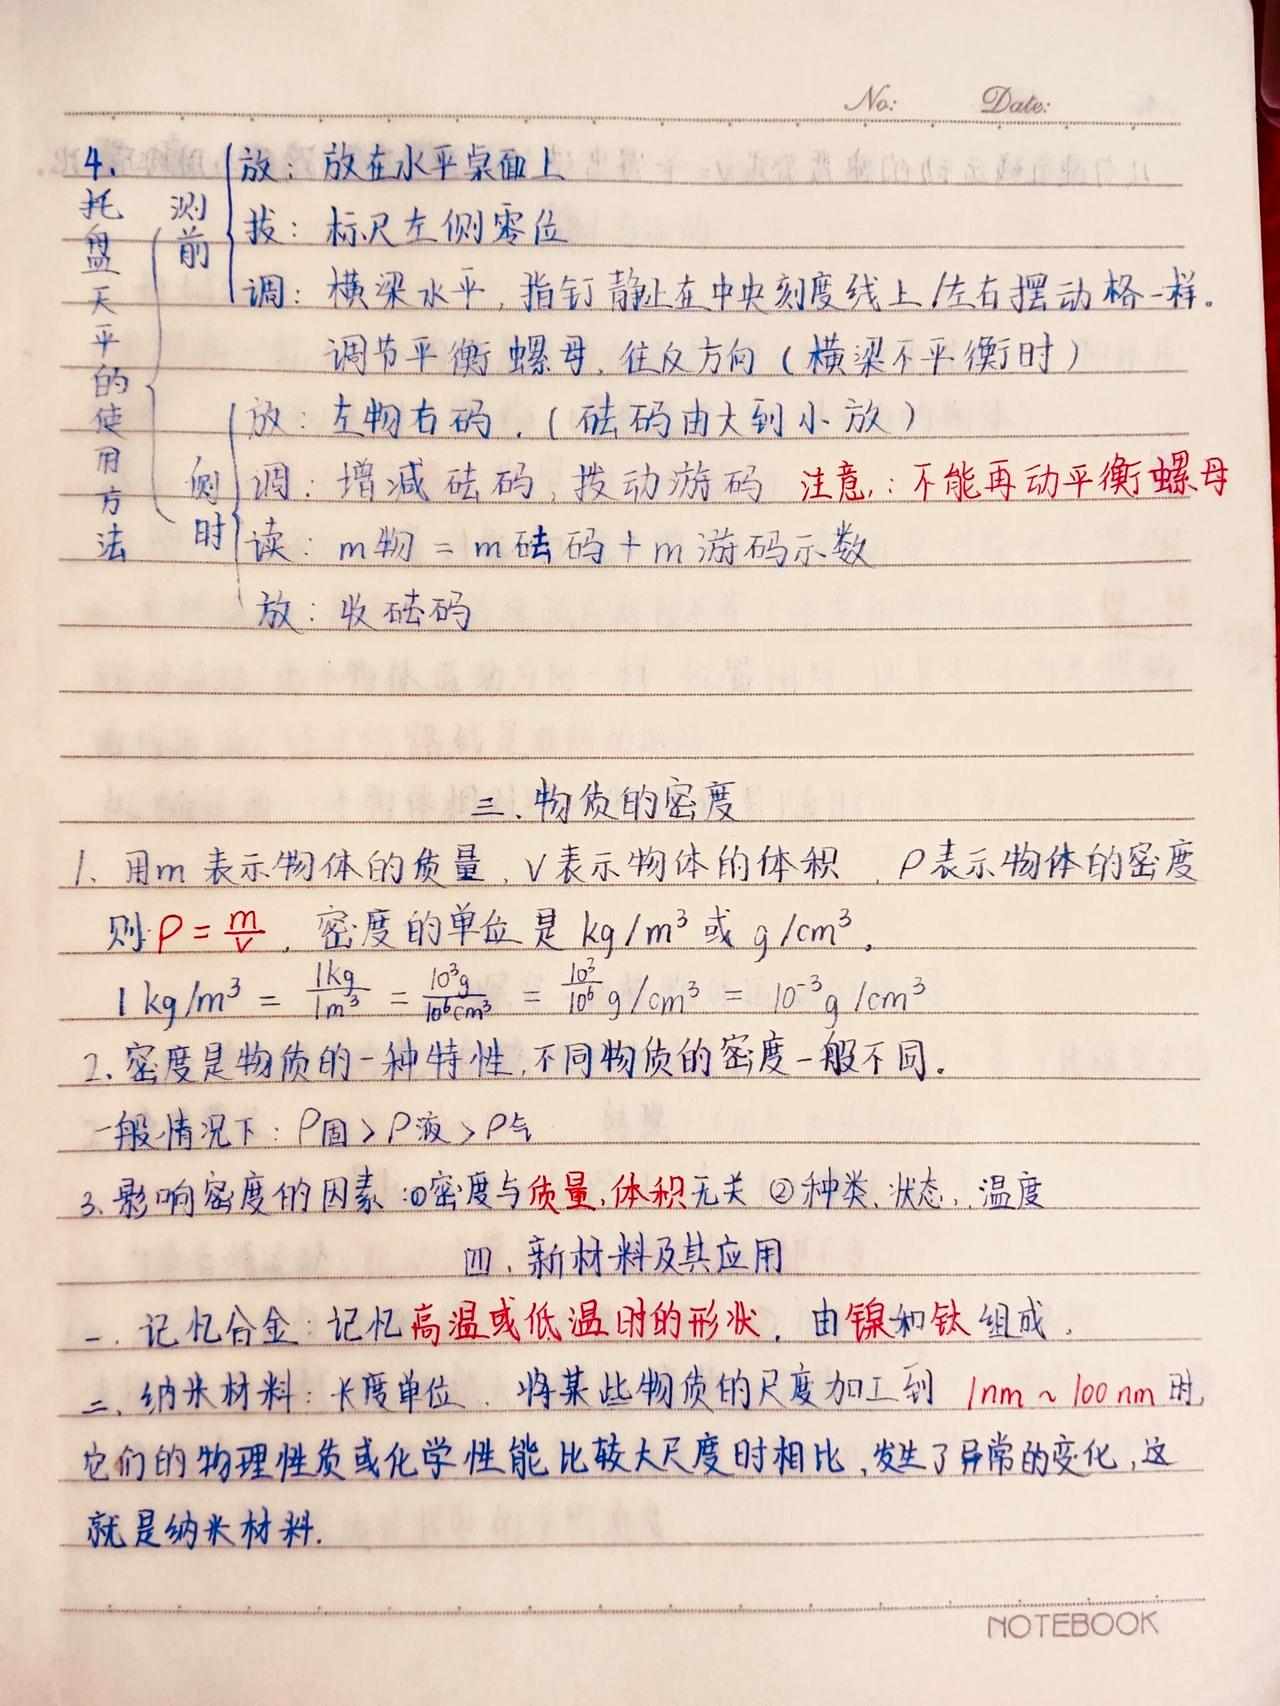 No: Date:
4、托盘天平的使用方法
测前
放：放在水平桌面上
拔：标尺左侧零位
调：横梁水平，指钉静止在中央刻度线上/左右摆动格一样。
调节平衡螺母、往反方向（横梁不平衡时）
侧时
放：左物右码，（砝码由大到小放）
调：增减砝码，拨动游码 注意,：不能再动平衡螺母
读：m物=m砝码+m游码示数
放：收砝码
三、物质的密度
1、用m表示物体的质量，V表示物体的体积，ρ表示物体的密度
则ρ=m/v，密度的单位是kg/m³或g/cm³。
1kg/m³ = 1kg/1m³ = 10³g/10⁶cm³ = 10³/10⁶ g/cm³ = 10⁻³g/cm³
2、密度是物质的一种特性，不同物质的密度一般不同。
一般情况下：ρ固>ρ液>ρ气
3、影响密度的因素：①密度与质量，体积无关 ②种类、状态、温度
四、新材料及其应用
一、记忆合金：记忆高温或低温时的形状，由镍和钛组成，
二、纳米材料：长度单位、将某些物质的尺度加工到1nm~100nm时，
它们的物理性质或化学性能比较大尺度时相比，发生了异常的变化，这
就是纳米材料.
NOTEBOOK